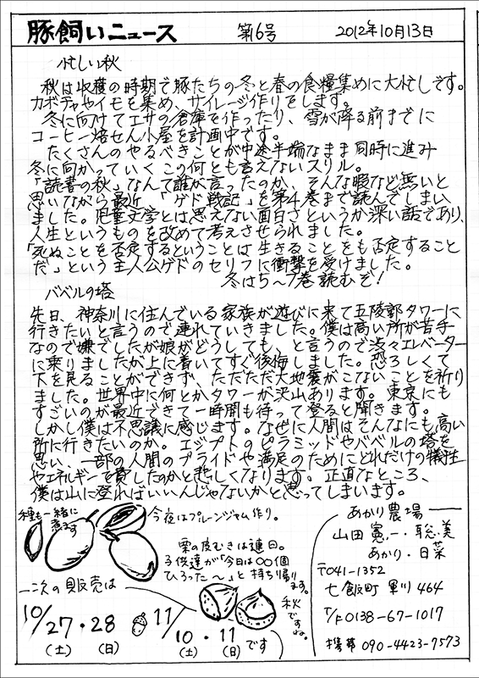 豚飼いニュース 第6号 2012年10月13日
忙しい秋
秋は収穫の時期で豚たちの冬と春の食糧集めに大忙しです。
カボチャやイモを集め、サイレージ作りをします。
冬に向けてエサの倉庫を作ったり、雪が降る前までに
コーヒー焙せん小屋を計画中です。
たくさんのやるべきことが中途半端なまま同時に進み
冬に向かっていくこの何とも言えないスリル。
「読書の秋」なんて誰が言ったのか、そんな暇など無いと
思いながら最近、「ゲド戦記」を第4巻まで読んでしまい
ました。児童文学とは思えない面白さというか深い話であり、
人生というものを改めて考えさせられました。
「死ぬことを否定するということは生きることをも否定すること
だ」という主人公ゲドのセリフに衝撃を受けました。
冬は5〜7巻読むぞ!
バベルの塔
先日、神奈川に住んでいる家族が遊びに来て五陵郭タワーに
行きたいと言うので連れていきました。僕は高い所が苦手
なので嫌でしたが娘がどうしても、と言うので渋々エレベーター
に乗りましたが上に着いてすぐ後悔しました。恐ろしくて
下を見ることができず、ただただ大地震がこないことを祈り
ました。世界中に何とかタワーが沢山あります。東京にも
すごいのが最近できて一時間も待って登ると聞きます。
しかし僕は不思議に感じます。なぜに人間はそんなにも高い
所に行きたいのか。エジプトのピラミッドやバベルの塔を
思い、一部の人間のプライドや満足のためにどれだけの犠牲
やエネルギーを費したのかと悲しくなります。正直なところ、
僕は山に登ればいいんじゃないかと思ってしまいます。
種も一緒に
煮ます
今夜はプルーンジャム作り。
栗の皮むきは連日。
子供達が「今日は〇〇個
ひろった〜」と持ち帰ります。
秋ですねぇ。
次の販売は
10/27・28 11/10・11です
(土) (日) (土) (日)
あかり農場
山田憲一・聡美
あかり・日菜
〒041-1352
七飯町 軍川 464
T/F 0138-67-1017
携帯 090-4423-7573